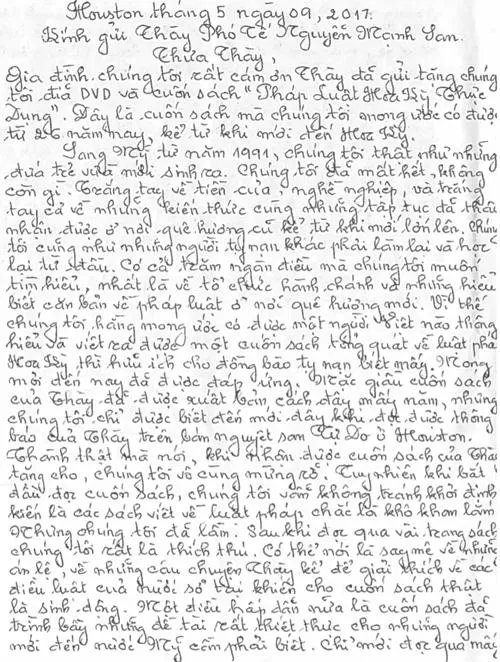 Houston tháng 5 ngày 09, 2017.
Kính gửi Thầy Phó Tế Nguyễn Mạnh San.
Thưa Thầy,
Gia đình chúng tôi rất cám ơn Thầy đã gửi tặng chúng
tôi đĩa DVD và cuốn sách "Pháp Luật Hoa Kỳ Thực
Dụng". Đây là cuốn sách mà chúng tôi mong ước có được
từ 26 năm nay, kể từ khi mới đến Hoa Kỳ.
Sang Mỹ từ năm 1991, chúng tôi thật như những
đứa trẻ vừa mới sinh ra. Chúng tôi đã mất hết, không
còn gì. Trắng tay về tiền của, nghề nghiệp, và trắng
tay cả về những kiến thức cùng những tập tục đã thâu
nhận được ở nơi quê hương cũ kể từ khi mới lớn lên. Chúng
tôi cũng như những người tỵ nạn khác phải làm lại và học
lại từ đầu. Có cả trăm ngàn điều mà chúng tôi muốn
tìm hiểu, nhất là về tổ chức hành chánh và những hiểu
biết căn bản về pháp luật ở nơi quê hương mới. Vì thế
chúng tôi hằng mong ước có được một người Việt nào thông
hiểu và viết ra được một cuốn sách tổng quát về luật pháp
Hoa Kỳ thì hữu ích cho đồng bào tỵ nạn biết mấy. Mong
mỏi đến nay đã được đáp ứng. Mặc dầu cuốn sách
của Thầy đã được xuất bản cách đây mấy năm, nhưng
chúng tôi chỉ được biết đến mới đây khi đọc được thông
báo của Thầy trên bán nguyệt san Tự Do ở Houston.
Thành thật mà nói, khi nhận được cuốn sách của Thầy
tặng cho, chúng tôi vô cùng mừng rỡ. Tuy nhiên khi bắt
đầu đọc cuốn sách, chúng tôi vẫn không tránh khỏi định
kiến là các sách viết về luật pháp chắc là khô khan lắm
Nhưng chúng tôi đã lầm. Sau khi đọc qua vài trang sách
chúng tôi rất là thích thú. Có thể nói là say mê về những
án lệ, về những câu chuyện Thầy kể để giải thích về các
điều luật của nước sở tại khiến cho cuốn sách thật
là sinh động. Một điều hấp dẫn nữa là cuốn sách đã
trình bầy những đề tài rất thiết thực cho những người
mới đến nước Mỹ cần phải biết. Chỉ mới đọc qua mấy